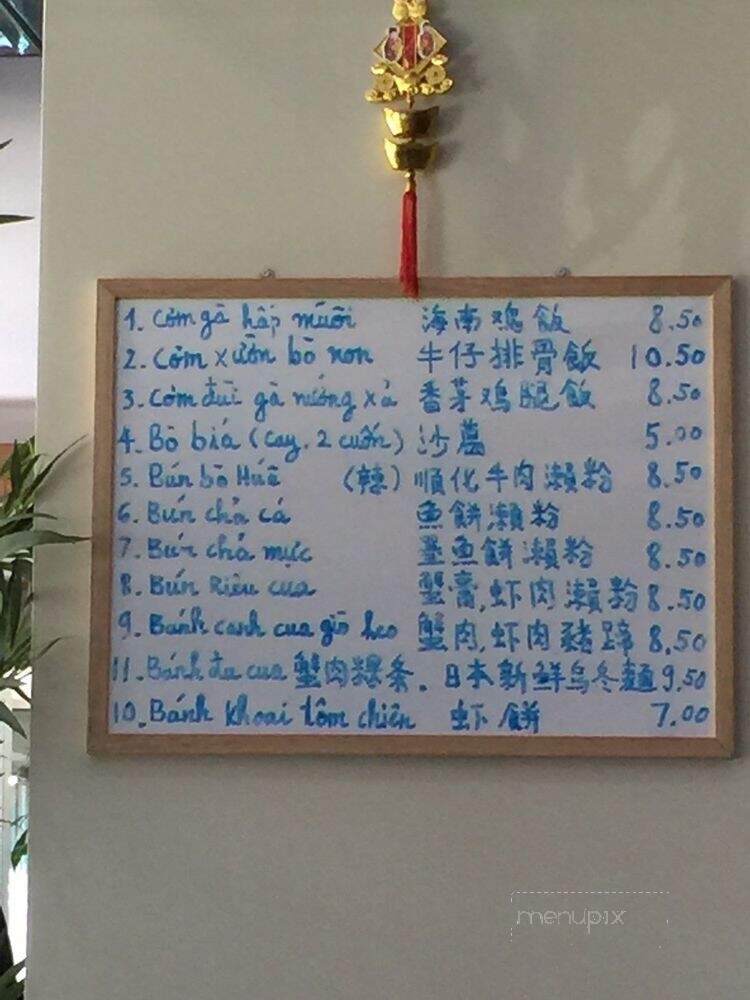 1. Cơm gà hấp muối 海南鸡飯 8.50
2. Cơm xườn bò non 牛仔排骨飯 10.50
3. Cơm đùi gà nướng xả 香茅鸡腿飯 8.50
4. Bò biá (cay. 2 cuốn) 沙葛 5.00
5. Bún bò Húê (辣) 順化牛肉瀨粉 8.50
6. Bún chả cá 魚餅瀨粉 8.50
7. Bún chả mực 墨魚餅瀨粉 8.50
8. Bún Riêu cua 蟹膏,虾肉瀨粉 8.50
9. Bánh canh cua giò heo 蟹肉,虾肉豬蹄 8.50
11. Bánh đa cua 蟹肉粿条. 日本新鮮烏冬麵 9.50
10. Bánh khoai tôm chiên 虾餅 7.00
menupix